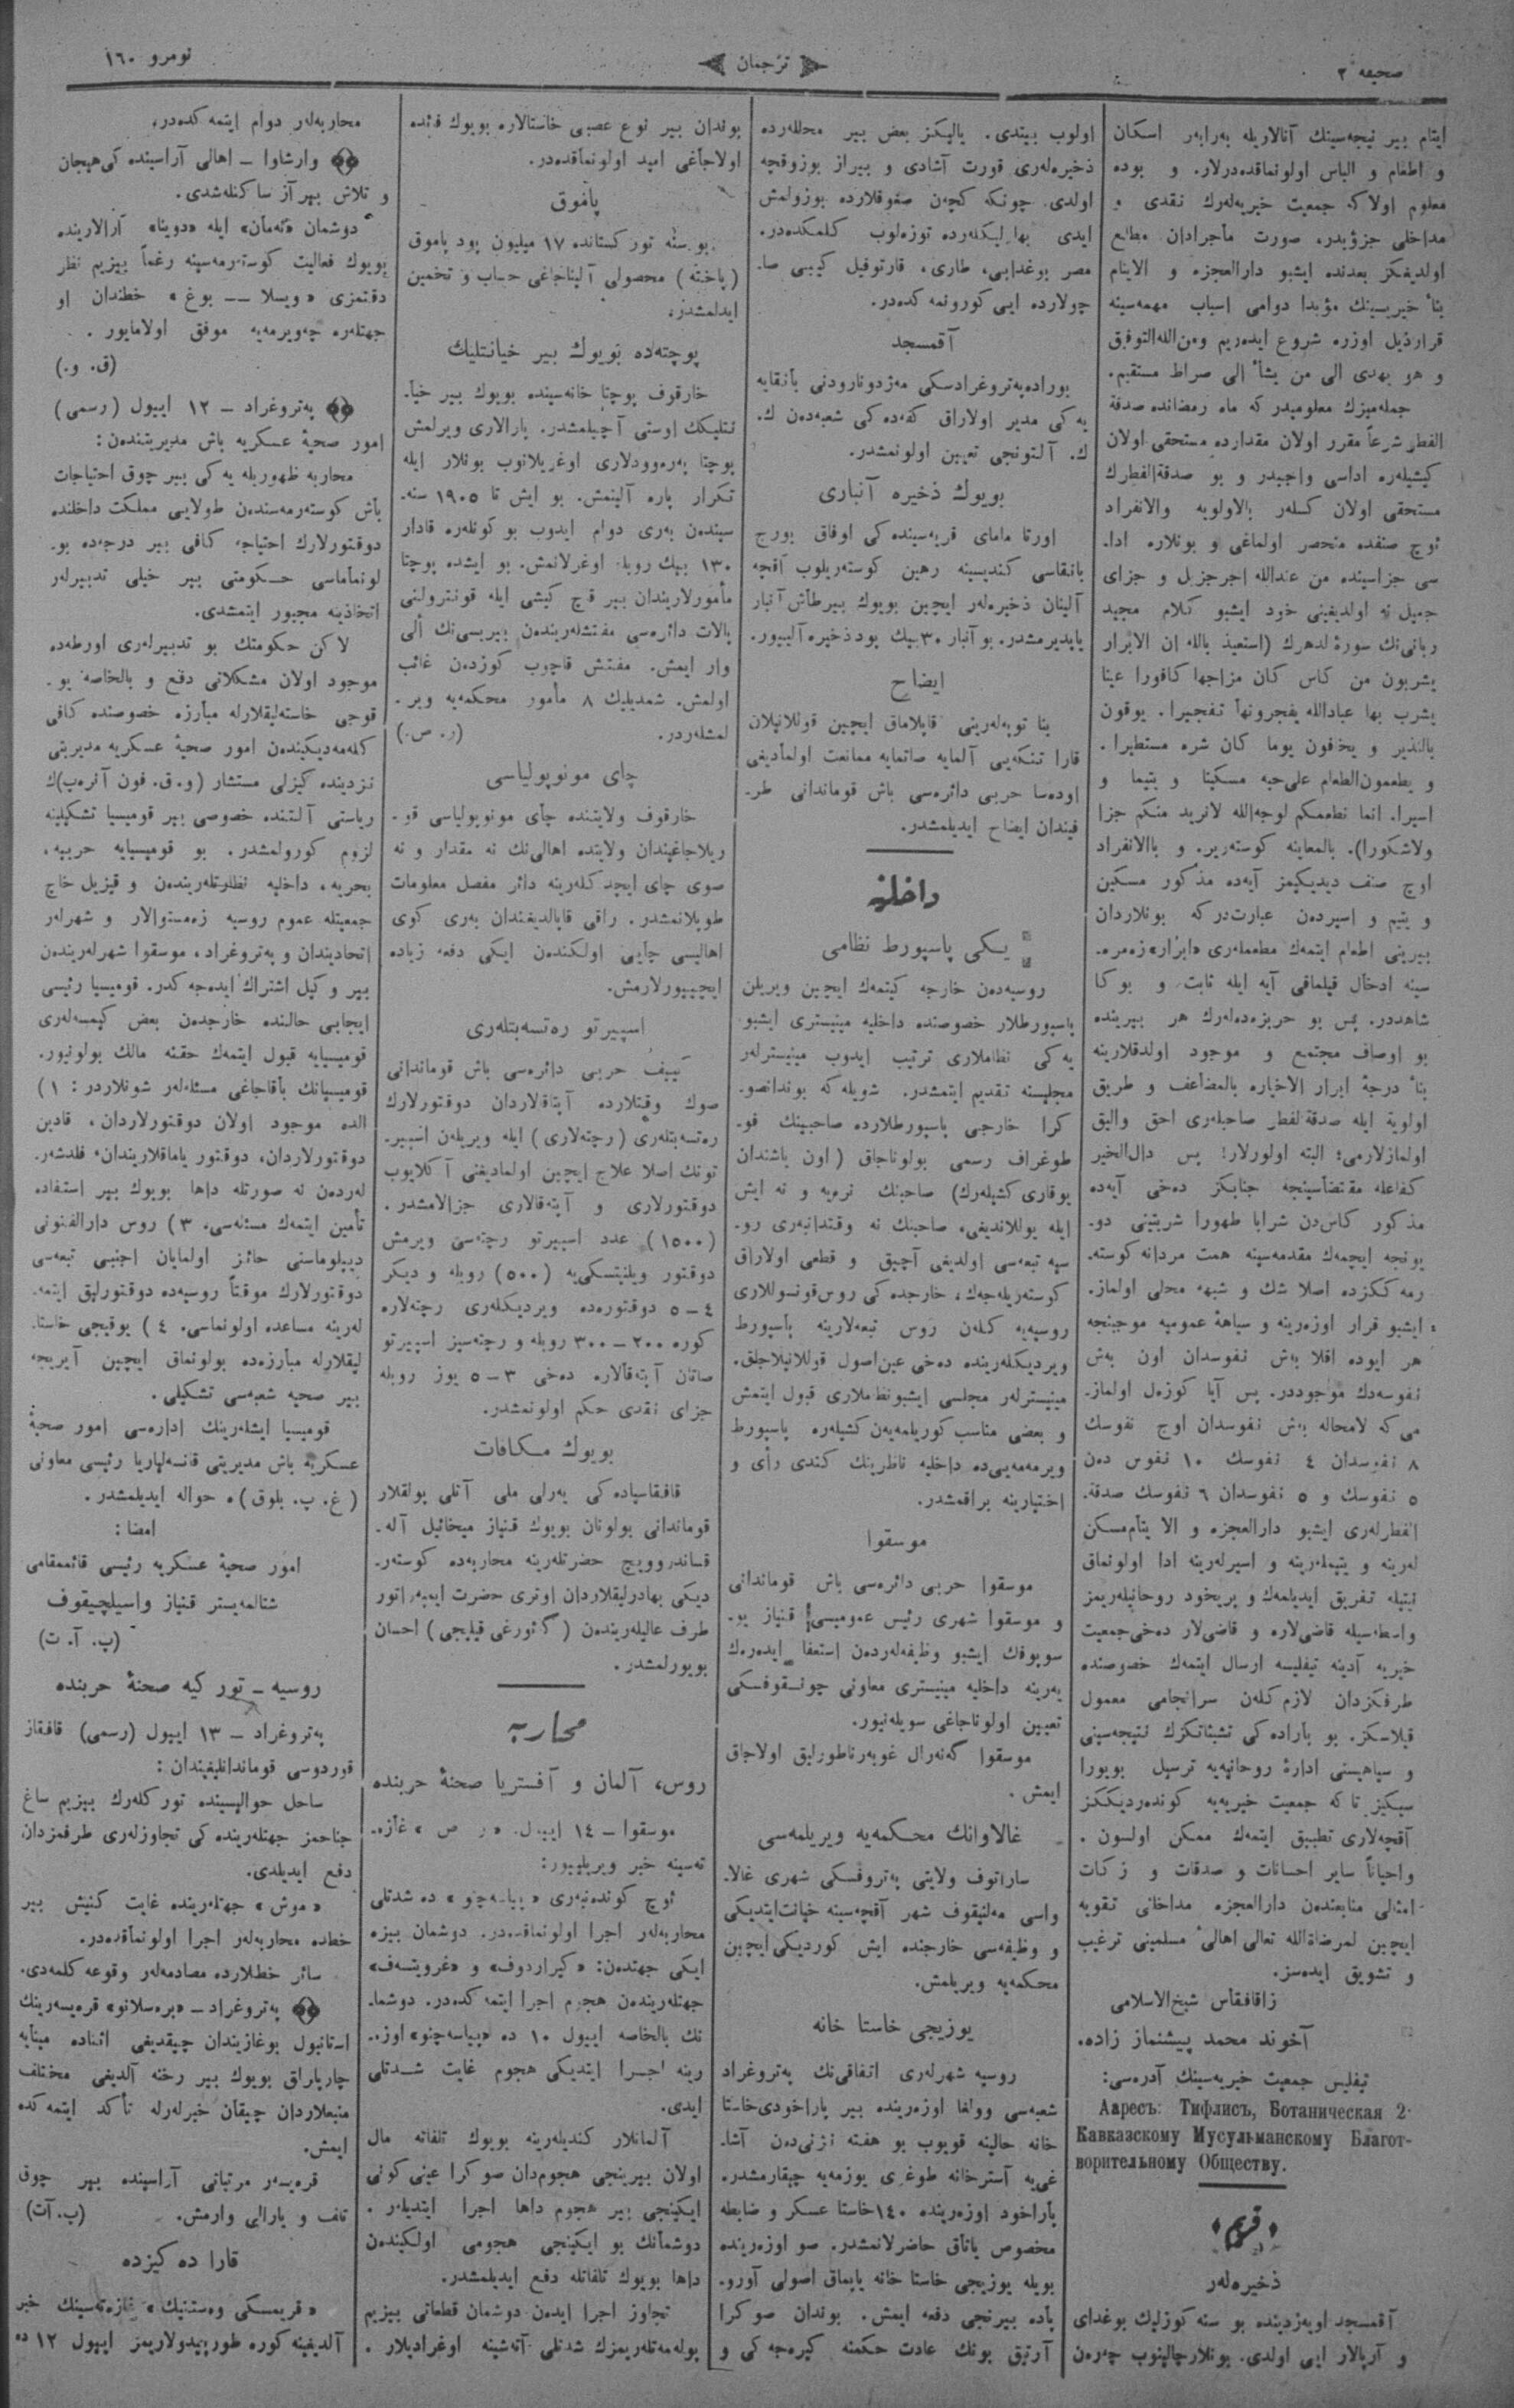 صحیفه ٢
ترجمان
نومرو ١٦٠
ایتام بیر نیجه‌سینك آنالاریله به‌رابه‌ر اسکان
و اطعام و الباس اولونماقده‌درلار. و بوده
معلوم اولاکه جمعیت خیریه‌لەرك نقدی و
قراردیل اوزره شروع ایده‌ریم ومن‌الله‌التوفیق
و هو یهدی الی من یشأ الی صراط مستقیم.
جمله‌میزك معلومیدر که ماه رمضانده صدقة
الفطر شرعاً مقرر اولان مقدارده مستحقی اولان
کیشیلەره اداسی واجیدر و بو صدقةالفطرك
مستحقی اولان کسلەر بالاولویه والانفراد
ربانی‌نك سورۀ لدهرك (استعیذ بالله ان الابرار
یشربون من کاس کان مزاجها کافورا عینا
یشرب بها عبادالله یفجرونها تفجیرا. یوفون
بالنذیر و یخافون یوما کان شره مستطیرا.
و یطعمون‌الطعام علی‌حبه مسکینا و یتیما و
اسیرا. انما نطعمکم لوجه‌الله لانرید منکم جزا
ولاشکورا). بالمعاینه کوسته‌ریر. و باالانفراد
اوچ صنف دیدیکیمز آیه‌ده مذکور مسکین
و یتیم و اسیردن عبارت‌در که بونلاردان
شاهددر. پس بو حریزه‌ده‌لەرك هر بیرینده
بو اوصاف مجتمع و موجود اولدقلارینه
اولویة ایله صدقةلفطر صاحبلەری احق والیق
اولمازلارمی؛ البته اولورلار! پس دال‌الخیر
مذکور کاس‌دن شرابا طهورا شربتینی دو۔
یونجه ایچمەك مقدمه‌سینه همت مردانه کوسته۔
رمه ککزده اصلا شك و شبهه محلی اولماز.
ایشبو قرار اوزەرینه و سیاهۀ عمومیه موجبنجه
هر ایوده اقلا به‌ش نفوسدان اون به‌ش
نفوسه‌دك موجوددر. پس آیا کوزه‌ل اولماز۔
می که لامحاله به‌ش نفوسدان اوچ نفوسك
٨ نفوسدان ٤ نفوسك ١٠ نفوس دەن
٥ نفوسك و ٥ نفوسدان ٦ نفوسك صدقة۔
الفطرلەری ایشبو دارالعجزه و الا یتام‌مسکن
لەرینه و یتیملەرینه و اسیرلەرینه ادا اولونماق
نیتیله تفریق ایدیلمەك و بریخود روحانیلەریمز
واسطه‌سیله قاضی‌لاره و قاضی‌لار ده‌خی جمعیت
خیریه آدینه تیفلیسه ارسال ایتمەك خصوصنده
طرفکزدان لازم کلەن سرانجامی معمول
قیلاسکز. بو بأراده کی تشبثاتکزك نتیجه‌سینی
و سیاهیسنی ادارۀ روحانیه‌یه ترسیل بویورا
سیکیز تا که جمعیت خیریه‌یه کونده‌ردیککز
آقچه‌لاری تطبیق ایتمەك ممکن اولسون.
واحیاناً سایر احسانات و صدقات و زکات
امثالی منابعندەن دارالعجزه مداخلنی تقویه
ایچین لمرضاةالله تعالی اهالیٔ مسلمینی ترغیب
و تشویق ایده‌سز.
زاقافقاس شیخ‌الاسلامی
آخوند محمد پیشنماز زاده.
تیفلیس جمعیت خیریه‌سینك آدره‌سی:
Адресъ: Тифлисъ, Ботаническая 2·
Кавказскому Мусульманскому Благот-
ворительному Обществу.
قریم
ذخیره‌لەر
آقمسجد اویه‌زدینده بو سنه کوزلیك بوغدای
و آرپالار ایی اولدی. بونلارچالینوب چه‌ره‌ن
اولوب بیتدی. یالیکز بعض بیر محللەرده
ذخیره‌لەری قورت آشادی و بیراز بوزوقچه
اولدی. چونکه کچه‌ن صغوقلارده بوزولمش
مصر بوغدایی، طاری، قارتوفیل کیبی صا۔
چولارده ایی کورونمه کده‌در.
آقمسجد
بوراده‌په‌تروغرادسکی مه‌ژدونارودنی بأنقایه
یه کی مدیر اولاراق کفه‌ده کی شعبه‌ده‌ن ك.
ك. آلتونجی تعیین اولونمشدر.
بویوك ذخیره آنباری
اورتا مامای قریه‌سینده کی اوفاق بورج
بانقاسی کندیسینه رهین کوسته‌ریلوب آقچه
آلینان ذخیره‌لەر ایچین بویوك بیرطأش آنبار
یاپدیرمشدر. بو آنبار ٣٠ بیك پود ذخیره آلییور.
ایضاح
بنا توبه‌لەرینی قاپلاماق ایچین قوللانیلان
قارا تنکه‌یی آلمایه صاتمایه ممانعت اولمأدیغی
اوده‌سا حربی دائره‌سی باش قوماندانی طر۔
فیندان ایضاح ایدیلمشدر.
داخلیه
یکی پاسپورط نظامی
روسیه‌دەن خارجه کیتمەك ایچین ویریلن
پاسپورطلار خصوصنده داخلیه مینیستری ایشبو
یه کی نظاملاری ترتیب ایدوب مینیسترلەر
مجلیسنه تقدیم ایتمشدر. شویله که بوندانصو۔
کرا خارجی پاسپورطلارده صاحبینك فو۔
طوغراف رسمی بولوناجاق (اون یاشندان
یوقاری کشیلەرك) صاحبنك نره‌یه و نه ایش
سیه تبعه‌سی اولدیغی آچیق و قطعی اولاراق
کوسته‌ریله‌جەك، خارجده کی روس‌قونسوللاری
روسیه‌یه کلەن روس تبعه‌لارینه پأسپورط
ویردیکلەرینده ده‌خی عین‌اصول قوللانیلاجلق.
مینیسترلەر مجلسی ایشبونظ‌ملاری قبول ایتمش
و بعضی مناسب کوریلمه‌یەن کشیلەره پاسپورط
ویرمه‌مه‌یی‌ده داخلیه ناظرینك کندی رأی و
اختیارینه براقمشدر.
موسقوا
موسقوا حربی دائره‌سی باش قوماندانی
و موسقوا شهری رئیس عمومیسی قنیاز یو۔
سوپوفك ایشبو وظیفه‌لەردەن استعفا ایده‌رەك
یەرینه داخلیه مینیستری معاونی جونقوفسکی
تعیین اولوناجاغی سویله‌نیور.
موسقوا گه‌نه‌رال غوبه‌رناطورلیق اولاجاق
ایمش.
غالاوانك محکمه‌یه ویریلمه‌سی
ساراتوف ولایتی په‌تروفسکی شهری غالا۔
واسی مه‌لنیقوف شهر آقچه‌سینه خیانت‌ایتدیکی
و وظیفه‌سی خارجنده ایش کوردیکی ایچین
محکمه‌یه ویریلمش.
یوزیجی خاستا خانه
روسیه شهرلەری اتفاقی‌نك په‌تروغراد
شعبه‌سی وولغا اوزه‌رینده بیر پاراخودی‌خاستا
خانه حالینه قویوب بو هفته نژنی‌دەن آشا۔
غی‌یه آسترخانه طوغری یوزمه‌یه چیقارمشدر.
پأراخود اوزه‌رینده ١٤٠ خاستا عسکر و ضابطه
مخصوص یاتاق حاضرلانمشدر. صو اوزه‌رینده
بویله یوزیجی خاستا خانه یاپماق اصولی آورو۔
پاده بیرنجی دفعه ایمش. بوندان صو کرا
آرتیق بونك عادت حکمنه کیره‌جه کی و
بوندان بیر نوع عصبی خاستالاره بویوك فائده
اولاجأغی امید اولونمأقده‌در.
پامُوق
بو سنه تورکستانده ١٧ میلیون پود پاموق
(پاخته) محصولی آلیناجاغی حساب و تخمین
ایدلمشدر.
پوچته‌ده بویوك بیر خیانتلیك
خارقوف پوچتا خانه‌سینده بویوك بیر خیأ۔
نتلیکك اوستی آچیلمشدر. پارالاری ویرلمش
پوچتا په‌ره‌وودلاری اوغریلانوب بونلار ایله
تکرار پاره آلینمش. بو ایش تا ١٩٠٥ سنه۔
سیندەن به‌ری دوام ایدوب بو کونلەره قادار
١٣٠ بیك روبله اوغرلانمش. بو ایشده پوچتا
مأمورلاریندان بیر قاچ کیشی ایله قونترولنی
پالات دائره‌سی مفتشلەریندەن بیریسی‌نك ألی
وار ایمش. مفتش قاچوب کوزدەن غائب
اولمش. شمدیلیك ٨ مأمور محکمه‌یه ویر۔
لمشلەردر. (ر. ص.)
چای مونوپولیاسی
خارقوف ولایتنده چأی مونوپولیاسی قو۔
ریلاجاغیندان ولایتده اهالی‌نك نه مقدار و نه
صوی چای ایچدکلەرینه دائر مفصل معلومات
طوپلانمشدر. راقی قاپالدیغندان به‌ری کوی
اهالیسی چأیی اولکندەن ایکی دفعه زیاده
ایچییورلارمش.
اسپیرتو ره‌تسه‌پتلەری
کییف حربی دائره‌سی باش قوماندانی
صوك وقتلارده آپتاقالاردان دوقتورلارك
ره‌تسه‌پتلەری (رچته‌لاری) ایله ویریلەن اسپیر۔
تونك اصلا علاج ایچین اولمادیغنی آکلایوب
دوقتورلاری و آپته‌قالاری جزالامشدر.
(١٥٠٠) عدد اسپیرتو رچته‌سی ویرمش
دوقتور ویلنیتسکی‌یه (٥٠٠) روبله و دیکر
٤–٥ دوقتوره‌ده ویردیکلەری رچته‌لاره
کوره ٢٠٠–٣٠٠ روبله و رچته‌سیز اسپیرتو
صاتان آپته‌قألاره ده‌خی ٣–٥ یوز روبله
جزای نقدی حکم اولونمشدر.
بویوك مکافات
قافقاسیاده کی یه‌رلی ملی آتلی پولقلار
قوماندانی بولونان بویوك قنیاز میخائیل آله۔
قساندروویچ حضرتلەرینه محاربه‌ده کوسته‌ر۔
دیکی بهادرلیقلاردان اوتری حضرت ایمپه‌راتور
طرف عالیلەریندەن (گئورغی قیلیجی) احسان
بویورلمشدر.
محاربه
روس، آلمان و آفستریا صحنۀ حربنده
موسقوا – ١٤ اییول. «ر ص» غازه۔
ته‌سینه خبر ویریلییور:
محاربه‌لەر اجرا اولونماقده‌در. دوشمان بیزه
ایکی جهتدەن: «کیراردوف» و «غرویتسه‌ف»
جهتلەریندەن هجوم اجرا ایتمه کده‌در. دوشما۔
نك بالخاصه اییول ١٠ ده «پیاسه‌چنو» اوزه۔
رینه اجرا ایتدیکی هجوم غایت شدتلی
ایدی.
آلمانلار کندیلەرینه بویوك تلفاته مال
اولان بیرینجی هجوم‌دان صوکرا عینی کونی
ایکینجی بیر هجوم داها اجرا ایتدیلەر.
دوشمأنك بو ایکینجی هجومی اولکیندەن
داها بویوك تلفاتله دفع ایدیلمشدر.
تجاوز اجرا ایدەن دوشمان قطعاتی بیزیم
پوله‌مه‌تلەریمزك شدتلی آتشینه اوغرادیلار.
محاربه‌لەر دوام ایتمه کده‌در.
وارشاوا – اهالی آراسینده کی هیجان
و تلاش بیر آز ساکتلەشدی.
بویوك فعالیت کوسته‌رمه‌سینه رغماً بیزیم نظر
دقتمزی «ویسلا –– بوغ» خطندان او
جهتلەره چه‌ویرمه‌یه موفق اولامایور.
(ق. و.)
په‌تروغراد – ١٢ اییول (رسمی)
امور صحیۀ عسکریه باش مدیریتندەن:
محاربه ظهوریله یه کی بیر چوق احتیاجات
بأش کوسته‌رمه‌سندەن طولایی مملکت داخلنده
دوقتورلارك احتیاجه کافی بیر درجه‌ده بو۔
لونمأماسی حکومتی بیر خیلی تدبیرلەر
اتخاذینه مجبور ایتمشدی.
لاکن حکومتك بو تدبیرلەری اورطه‌ده
موجود اولان مشکلاتی دفع و بالخاصه یو۔
قوجی خاسته‌لیقلارله مبأرزه خصوصنده کافی
کلمه‌دیکیندەن امور صحیۀ عسکریه مدیریتی
نزدینده کیزلی مستشار (و. ق. فون آنره‌پ)ك
ریاستی آلتنده خصوصی بیر قومیسیا تشکیلینه
لزوم کورولمشدر. بو قومیسیایه حربیه،
بحریه، داخلیه نظارتلەریندەن و قیزیل خاچ
جمعیتله عموم روسیه زه‌مستوالار و شهرلەر
اتحادیندان و په‌تروغراد، موسقوا شهرلەریندەن
بیر وکیل اشتراك ایده‌جه کدر. قومیسیا رئیسی
ایجابی حالنده خارجدەن بعض کیمسه‌لەری
قومیسیایه قبول ایتمەك حقنه مالك بولونیور.
قومیسیانك بأقاجاغی مسئله‌لەر شونلاردر: ١)
الده موجود اولان دوقتورلاردان، قادین
دوقتورلاردان، دوقتور یاماقلاریندان، فلدشەر۔
لەردەن نه صورتله داها بویوك بیر استفاده
تأمین ایتمەك مسئله‌سی، ٣) روس دارالفنونی
دیپلوماسنی حائز اولمایان اجنبی تبعه‌سی
دوقتورلارك موقتاً روسیه‌ده دوقتورلیق ایتمه۔
لەرینه مساعده اولونماسی، ٤) یوقیجی خاستا۔
لیقلارله مبأرزه‌ده بولونماق ایچین آیریجه
بیر صحیه شعبه‌سی تشکیلی.
قومیسیا ایشلەرینك اداره‌سی امور صحیۀ
عسکریه باش مدیریتی قانسه‌لیاریا رئیسی معاونی
(غ. پ. یلوق)ه حواله ایدیلمشدر.
امضا:
امور صحیۀ عسکریه رئیسی قائممقامی
شتالمه‌یستر قنیاز واسیلچیقوف
(پ. آ. ت)
روسیه – تورکیه صحنۀ حربنده
په‌تروغراد – ١٣ اییول (رسمی) قافقاز
قوردوسی قوماندانلیغیندان:
ساحل حوالیسینده تورکلەرك بیزیم ساغ
جناحمز جهتلەرینده کی تجاوزلەری طرفمزدان
دفع ایدیلدی.
«موش» جهتلەرینده غایت کنیش بیر
خطده محاربه‌لەر اجرا اولونمأقده‌در.
سائر خطلارده مصادمه‌لەر وقوعه کلمه‌دی.
په‌تروغراد – «بره‌سلانو» قره‌یسه‌رینك
استانبول بوغازیندان چیقدیغی اثناده مینایه
چارپاراق بویوك بیر رخنه آلدیغی مختلف
منبعلاردان چیقان خبرلەرله تأکد ایتمه کده
ایمش.
قره‌یسه‌ر مرتباتی آراسینده بیر چوق
تلف و یارالی وارمش. (پ. آت)
قارا ده کیزده
«قریمسکی وه‌ستنیك» غازه‌ته‌سینك خبر
آلدیغینه کوره طورپیدولاریمز اییول ١٢ ده